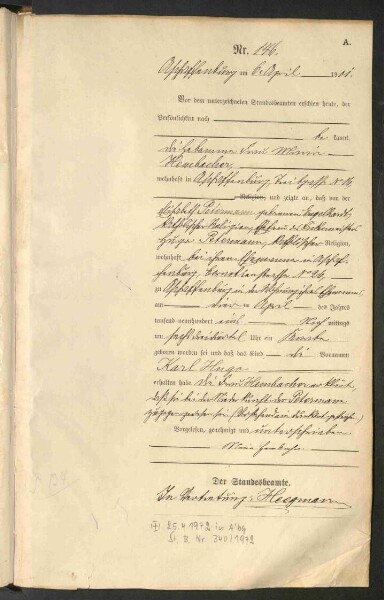 A.
Nr. 146.
Aschaffenburg am 6. April 1901.
Vor dem unterzeichneten Standesbeamten erschien heute, der
Persönlichkeit nach
be kannt,
die Hebamme Frau Maria
Hembacher,
wohnhaft in Aschaffenburg, N. 16,
Religion, und zeigte an, daß von der
Elisabeth Petermann geborenen Engelhardt,
katholischer Religion,
Hugo Petermann, katholischer Religion,
wohnhaft bei ihrem Ehemanne in Aschaf-
fenburg, Corneliusstraße N. 26,
zu Aschaffenburg in der Wohnung ihres Ehemannes,
am vier ten April des Jahres
tausend neunhundert ein Nach mittags
um sechs dreiviertel Uhr ein Knabe
geboren worden sei und daß das Kind die Vornamen
Karl Hugo
erhalten habe. Die Frau Hembacher erklärt,
daß sie bei der Niederkunft der Petermann
zugegen gewesen sei.
Vorgelesen, genehmigt und unterschrieben
Maria Hembacher.
Der Standesbeamte.
In Vertretung: Heegmann
25.4.1972 in A'bg
St. B. Nr. 340/1972